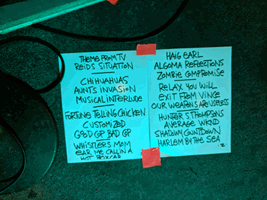 THEME FROM TV
REIDS SITUATION
CHIHUAHUAS
AUNTS INVASION
MUSICAL INTERLUDE
FORTUNE TELLING CHICKEN
CUSTOM ZOD
GOOD GP BAD GP
WHISTLER'S MOM
HAIG EARL
ALGOMA REFLECTIONS
ZOMBIE COMPROMISE
RELAX YOU WILL
EXIT FROM VINCE
OUR WEAPONS ARE USELESS
HUNTER S THOMPSONS
AVERAGE WEND
SHADOW COUNTDOWN
HARLEM BY THE SEA